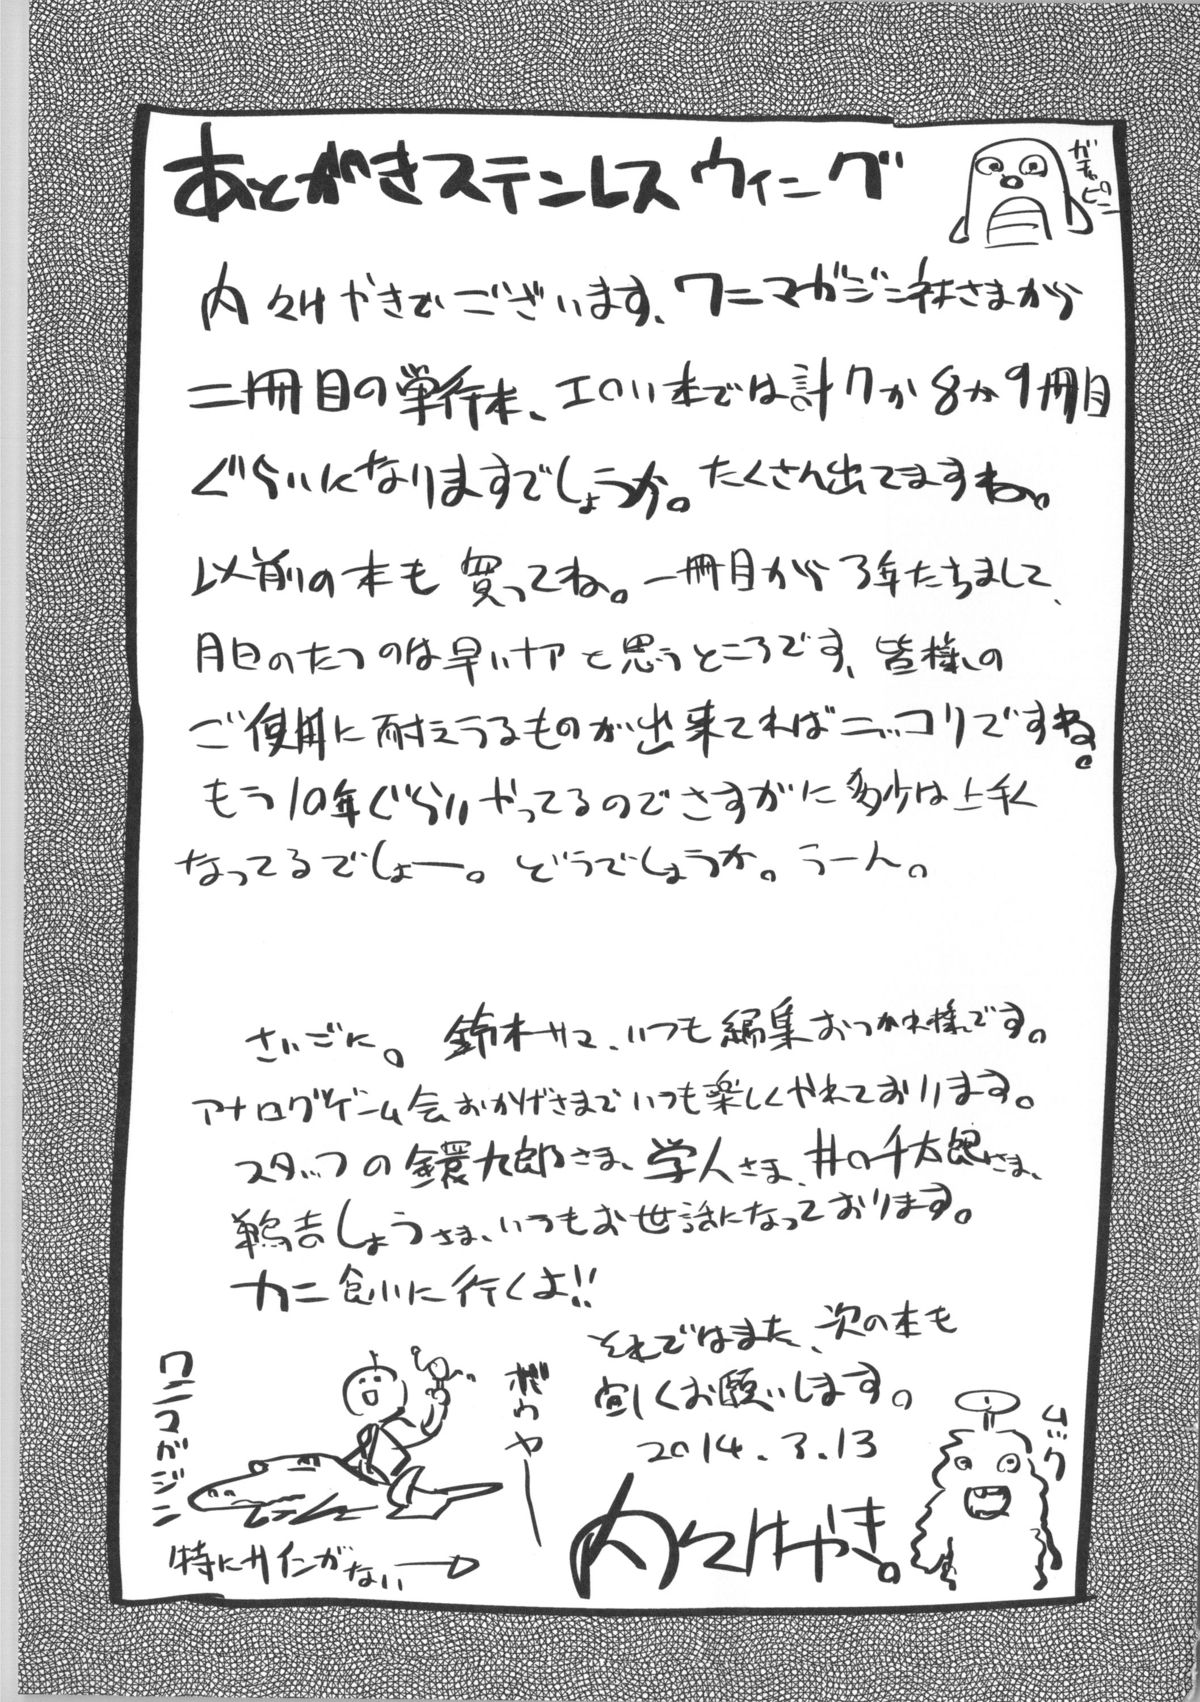 あとがきステンレスウィング
ガチャピン
内々けやきでございます、ワニマガジン社さまから
二冊目の単行本、エロい本では計7か8か9冊目
ぐらいになりますでしょうか。たくさん出てますね。
以前の本も買ってね。一冊目から3年たちまして、
月日のたつのは早いナアと思うところです、皆様の
ご使用に耐えうるものが出来てればニッコリですね。
もう10年ぐらいやってるのでさすがに多少は上手く
なってるでしょー。どうでしょうか。うーん。
さいごに。鈴木サマ、いつも編集おつかれ様です。
アナログゲーム会おかげさまでいつも楽しくやれております。
スタッフの鐶九郎さま、学人さま、井の千太郎さま、
鶉吉しょうさま、いつもお世話になっております。
カニ食いに行くよ!!
それではまた、次の本も
宜しくお願いします。
2014.3.13
内々けやき。
ムック
ワニマガジン
ボウヤー
特にサインがない→